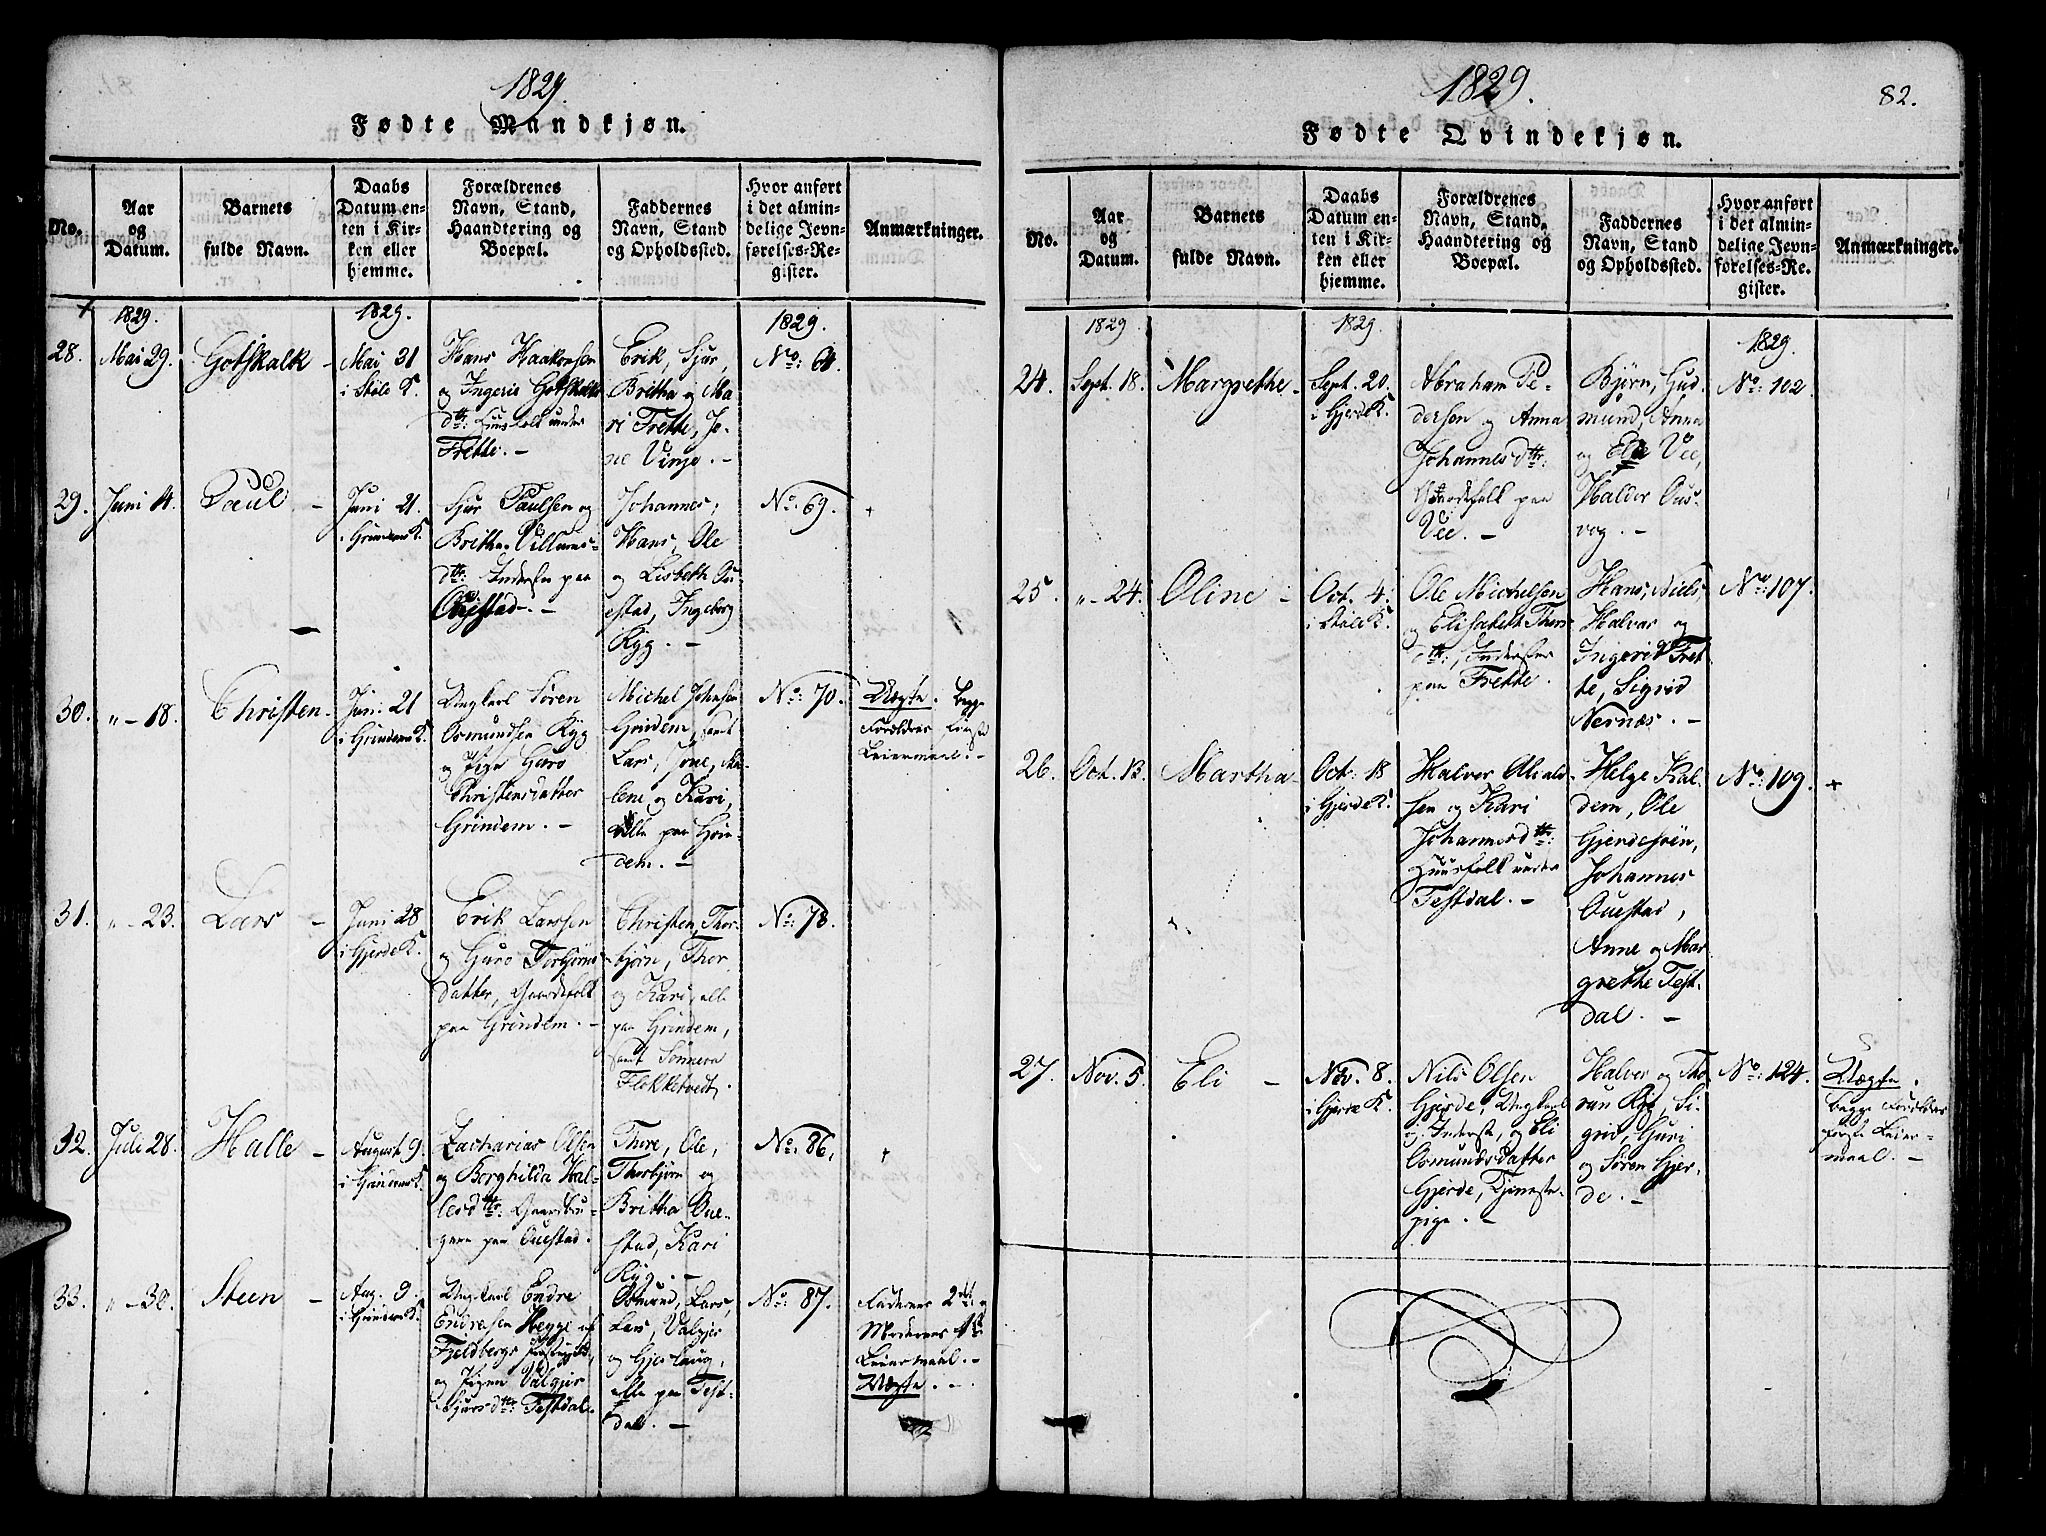 1829.
Fødte Mandkjøn.
No.
Aar
og
Datum.
Barnets
fulde Navn.
Daabs
Datum en-
ten i Kir-
ken eller
hjemme.
Forældrenes
Navn, Stand,
Haandtering og
Boepæl.
Faddernes
Navn, Stand
og Opholdssted.
Hvor anført
i det almin-
delige Jevn-
førelses-Re-
gister.
Anmærkninger.
1829.
1829.
1829.
28.
Mai 29.
Gotskalk
Mai 31
i Støle K.
Hans Haakonsen
og Ingeris Gotskalks
dtr: Huusfolk under
Frette.
Erik, Sjur,
Britha og Ma
ri Frette, Jo-
ne Vinje.
No: 61.
29.
Juni 4.
Paul
Juni 21.
i Grindem K.
Sjur Paulsen og
Britha Villums-
dtr: Inderster paa
Ouestad.
Johannes,
Hans, Ole
og Lisbeth Ou-
estad, Ingeborg
Ryg.
No: 69.
+
30.
" - 18.
Christen
Juni 21
i Grindem K.
Ungkarl Søren
Osmundsen Ryg
og Pige Guro
Christensdatter
Grindem.
Michel Johnsen
Grindem, samt
Lars, Jone, Ma-
lene og Kari,
alle paa Grin-
dem.
No: 70.
Uægte. begge
Forældres første
Leiermaal.
31.
" - 23.
Lars
Juni 28
i Gjerde K.
Erik Larssen
og Guro Torbjørns
datter, Gaardfolk
paa Grindem.
Christen, Thor-
bjørn, Thor
og Kari, alle
paa Grindem,
samt Sønneva
Flokketvedt.
No: 78.
32.
Juli 28.
Halle
August 9.
i Grindem K.
Zacharias Olsen
og Borghilda Hal-
lesdtr: Gaardbru-
gere paa Ouestad.
Thore, Ole,
Thorbjørn og
Britha Oue-
stad, Kari
Ryg.
No: 86.
+
33.
" - 30.
Steen
Aug. 9.
i Grindem K.
Ungkarl Endre
Endresen Hegge af
Fjeldbergs Præstegjeld,
og Pigen Valgjer
Sjursdtr: Testdal.
Osmund, Lars,
Lars, Valgjer
og Gjerlaug,
alle paa Test-
dal.
No: 87.
Faderens 2det og
Moderens 1ste
Leiermaal.
Uægte.
1829.
82.
Fødte Qvindekjøn.
No.
Aar
og
Datum.
Barnets
fulde Navn.
Daabs
Datum en-
ten i Kir-
ken eller
hjemme.
Forældrenes
Navn, Stand,
Haandtering og
Boepæl.
Faddernes
Navn, Stand
og Opholdssted.
Hvor anført
i det almin-
delige Jevn-
førelses-Re-
gister.
Anmærkninger.
1829
1829.
1829.
24.
Sept. 18.
Margrethe
Sept. 20.
i Gjerde K.
Abraham Pe-
dersen og Anna
Johannesdtr:
Gaardfolk paa
Vee.
Bjørn, Gud-
mund, Anna
og Elie Vee,
Haldor Ous-
vog.
No: 102.
25.
" - 24.
Oline
Oct. 4.
i Støle K.
Ole Michelsen
og Elisabeth Thors
dtr:, Inderster
paa Frette.
Hans, Niels,
Halvar og
Ingerid Fret
te, Sigrid
Nernæs.
No: 107.
26.
Oct. 13.
Martha
Oct. 18
i Gjerde K.
Halver
sen og Kari
Johannesdtr:
Huusfolk under
Testdal.
Helge Kal-
dem, Ole
Gjerdesven,
Johannes
Ouestad,
Anne og Mar
grethe Test-
dal.
No: 109.
+
27.
Nov. 5.
Eli
Nov. 8.
i Gjerde K.
Nils Olsen
Gjerde, Ungkarl
og Inderste, og Eli
Osmundsdatter
Gjerde, Tjeneste-
pige.
Halver og Tho
run Ryg, Si-
grid, Guri
og Søren Gjer-
de.
No: 124.
Uægte.
begge Forældres
første Leier-
maal.